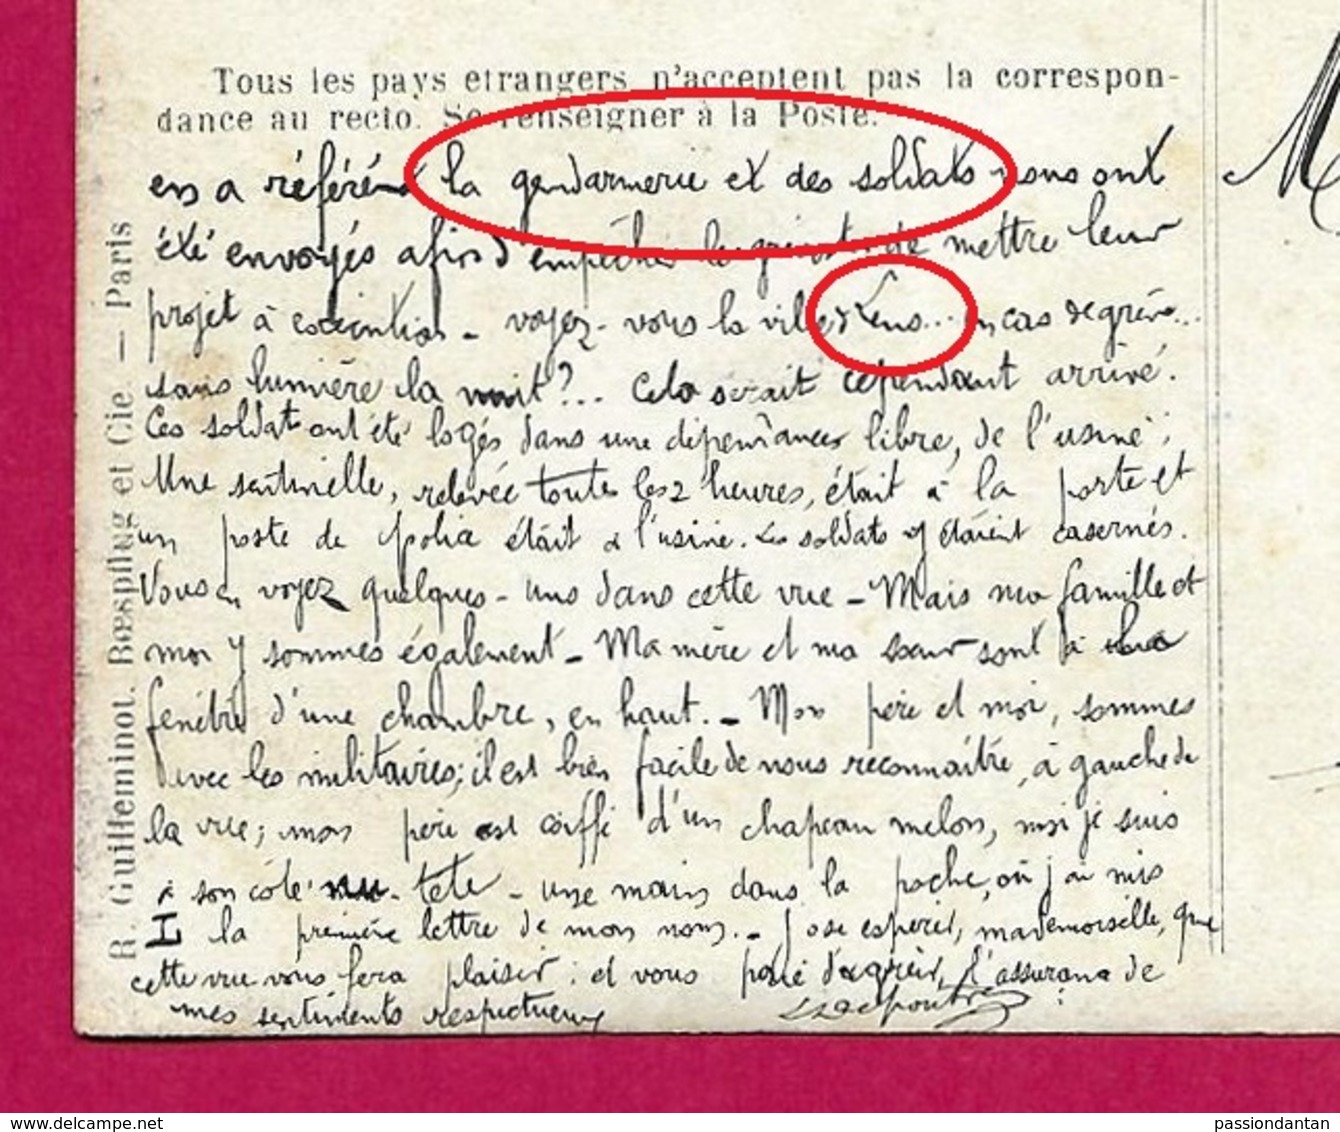 Tous les pays étrangers n'acceptent pas la correspon-
dance au recto. Se renseigner à la Poste.
en a référé la gendarmerie et des soldats nous ont
été envoyés afin d'empêcher les grévistes de mettre leur
projet à exécution - voyez-vous la ville de Lens... en cas de grève...
sans lumière la nuit?... Cela serait cependant arrivé.
Ces soldats ont été logés dans une dépendances libre, de l'usine;
Une sentinelle, relevée toutes les 2 heures, était à la porte et
un poste de police était à l'usine. Les soldats y étaient casernés.
Vous en voyez quelques-uns dans cette vue - Mais ma famille et
moi y sommes également - Ma mère et ma sœur sont à la
fenêtre d'une chambre, en haut. - Mon père et moi, sommes
avec les militaires; il est bien facile de nous reconnaître, à gauche de
la vue; mon père est coiffé d'un chapeau melon, moi je suis
à son côté nu-tête - une main dans la poche, où j'ai mis
I la première lettre de mon nom. - J'ose espérer, mademoiselle, que
cette vue vous fera plaisir: et vous prie d'agréer, l'assurance de
mes sentiments respectueux
R. Guilleminot, Bœspflug et Cie. — Paris
M
www.delcampe.net
passiondantan